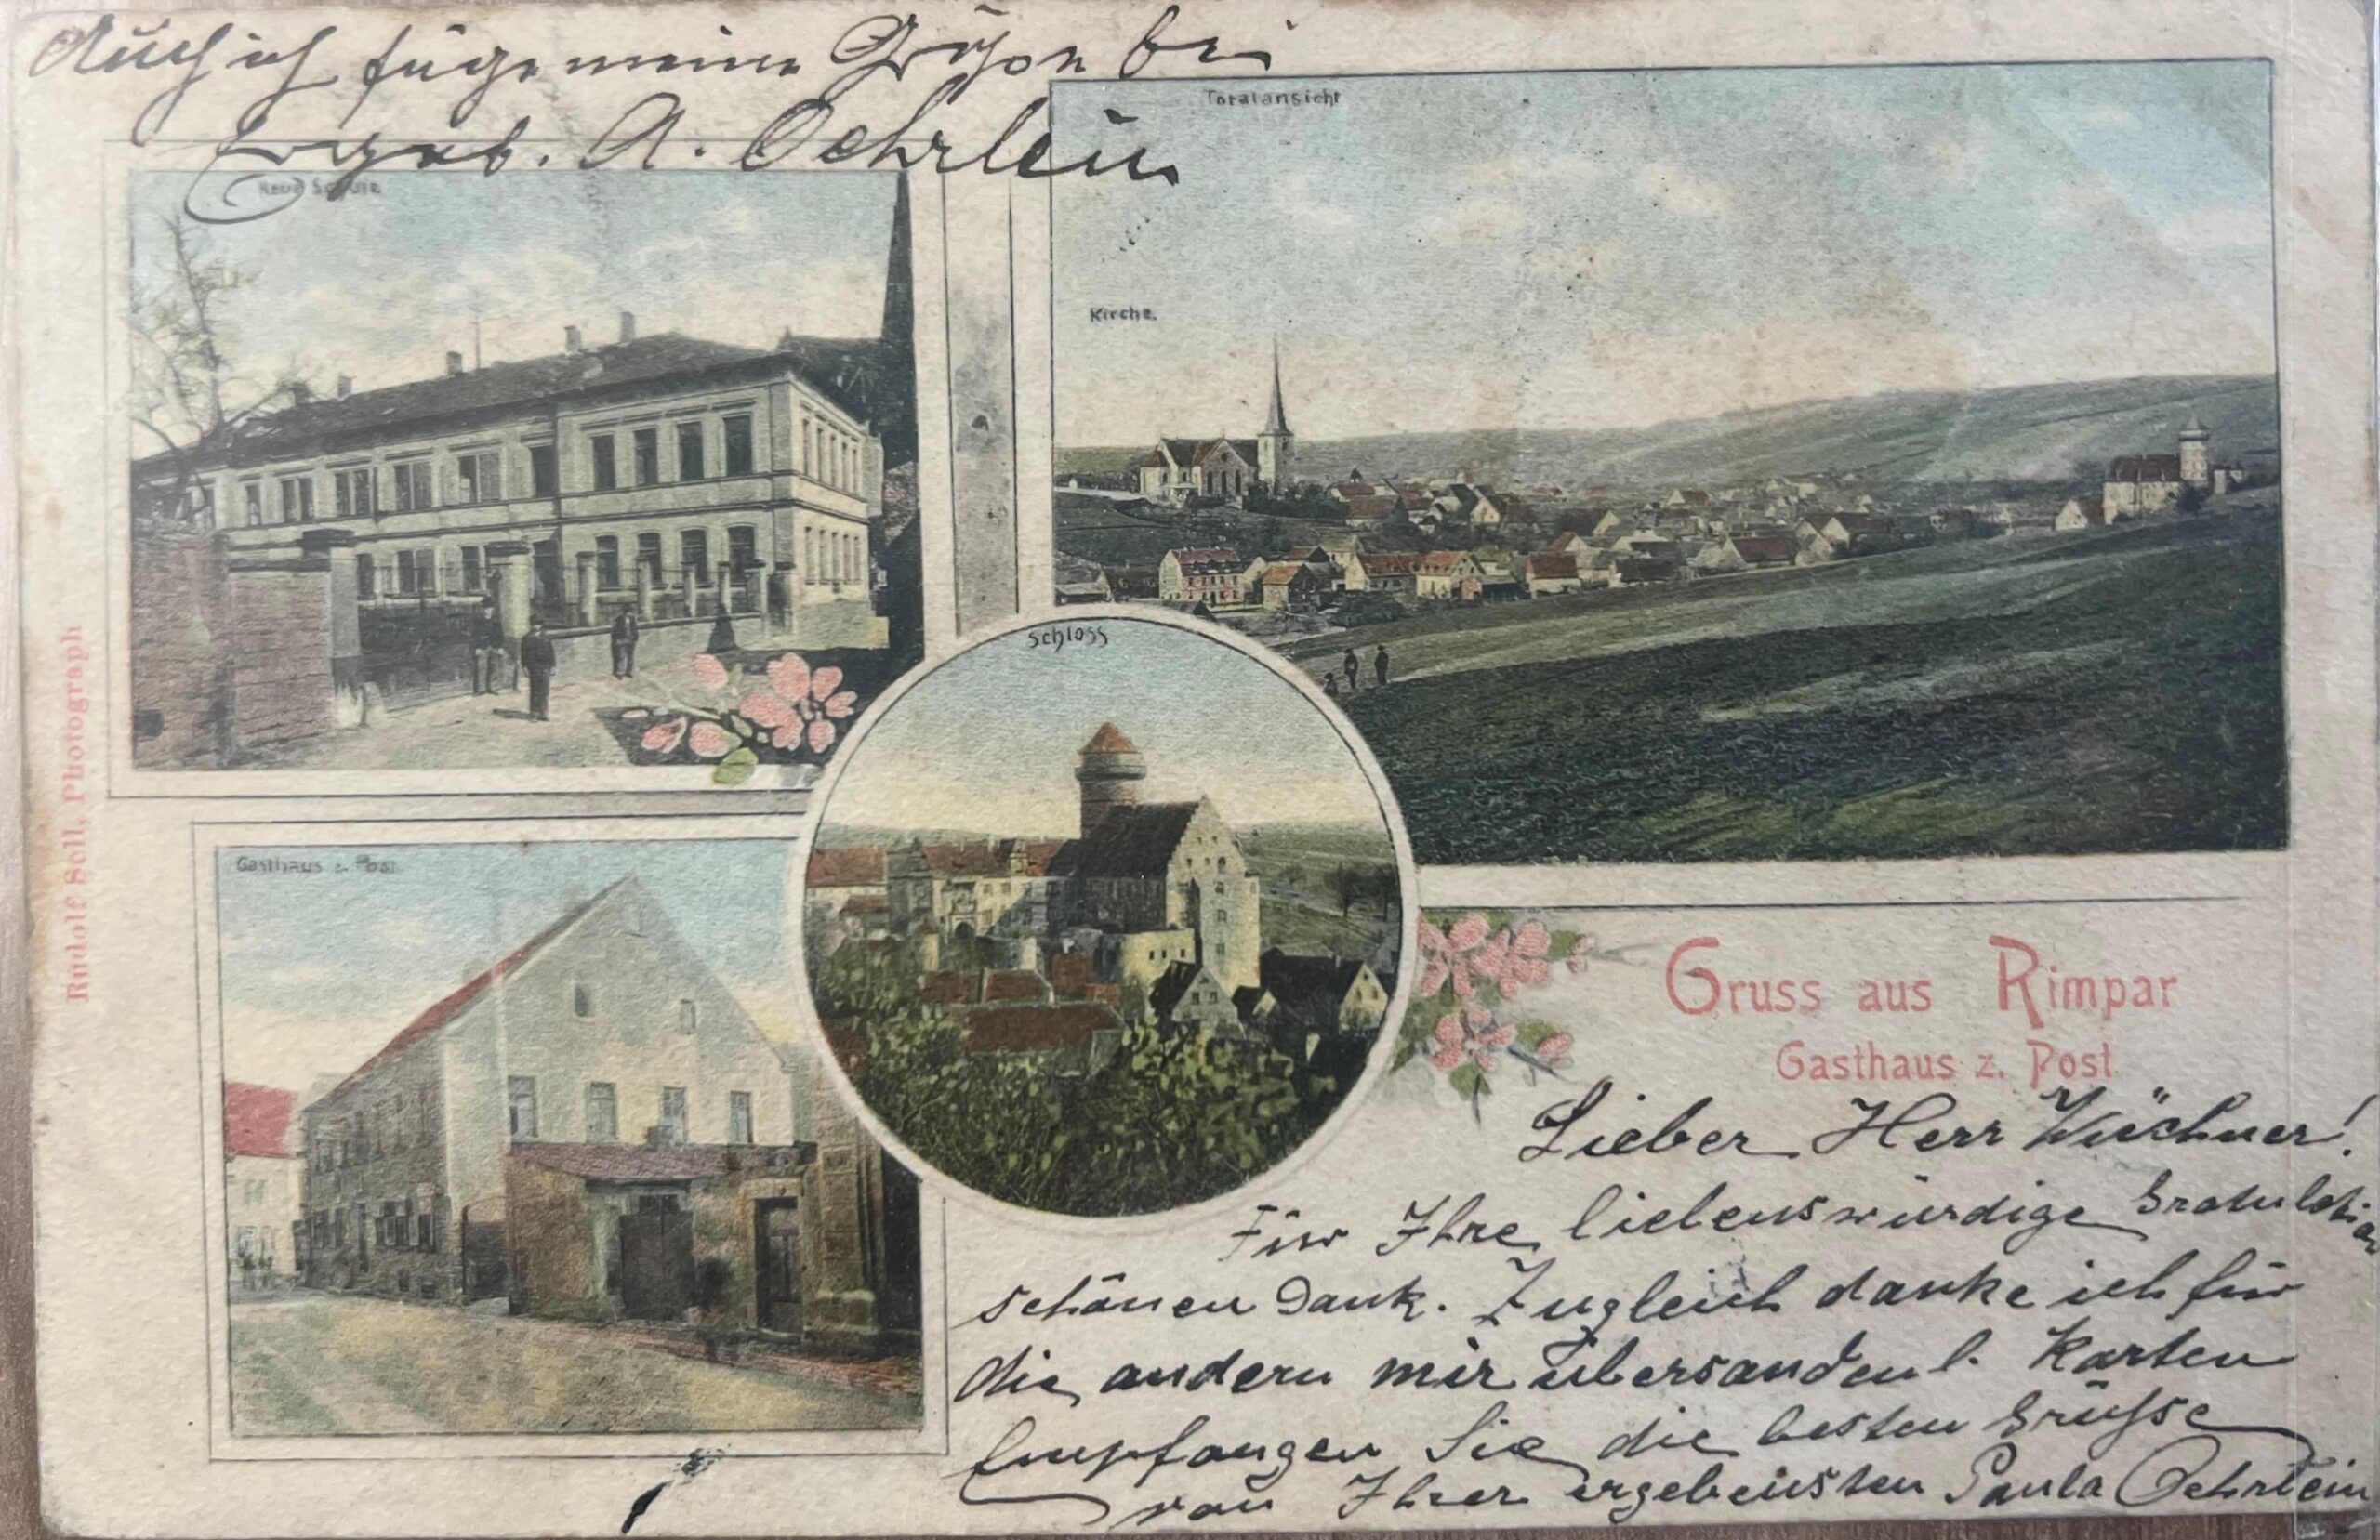 Auch ich füge meine Grüße bei
Ergeb. A. Oehrlein
Neue Schule
Totalansicht
Kirche.
Schloss
Gasthaus z. Post
Rudolf Soll, Photograph
Gruss aus Rimpar
Gasthaus z. Post
Lieber Herr Wüchner!
Für Ihre liebenswürdige Gratulation
schönen Dank. Zugleich danke ich für
die andern mir übersanden l. Karten
Empfangen Sie die besten Grüsse
von Ihrer ergebensten Paula Oehrlein